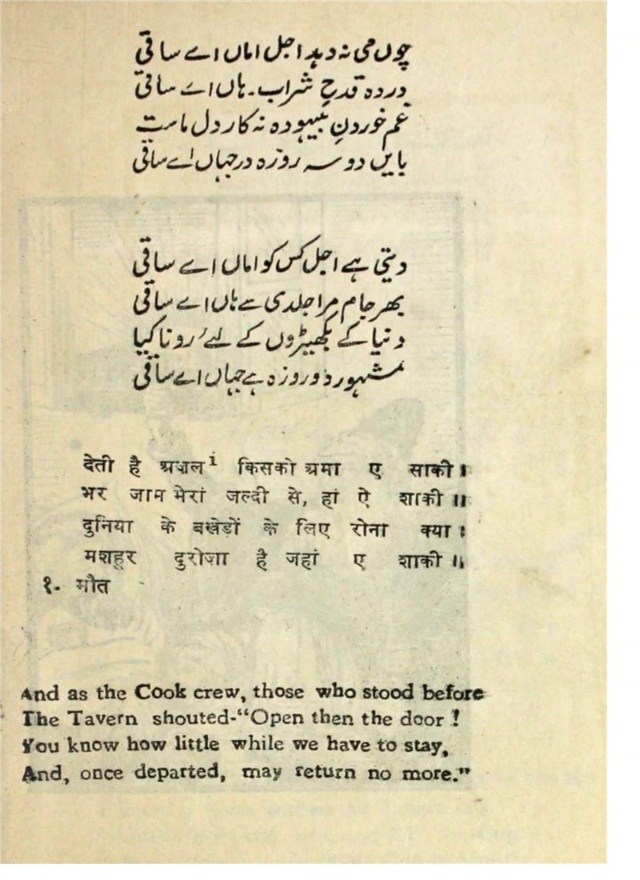 چوں می نہ دہد اجل اماں اے ساقی
در دہ قدحِ شراب۔ ہاں اے ساقی
غم خوردنِ بیہودہ نہ کار دل ماست
بایں دو سہ روزہ در جہاں اے ساقی
دیتی ہے اجل کس کو اماں اے ساقی
بھر جام مرا جلدی سے ہاں اے ساقی
دنیا کے بکھیڑوں کے لیے رونا کیا
مشہور دوروزہ ہے جہاں اے ساقی
देती है अज़ल¹ किसको अमा ए साकी ।
भर जाम मेरा जल्दी से, हां ऐ शाकी ॥
दुनिया के बखेडों के लिए रोना क्या ।
मशहूर दुरोज़ा है जहां ए शाकी ॥
१- मौत
And as the Cook crew, those who stood before
The Tavern shouted-“Open then the door !
You know how little while we have to stay,
And, once departed, may return no more.”